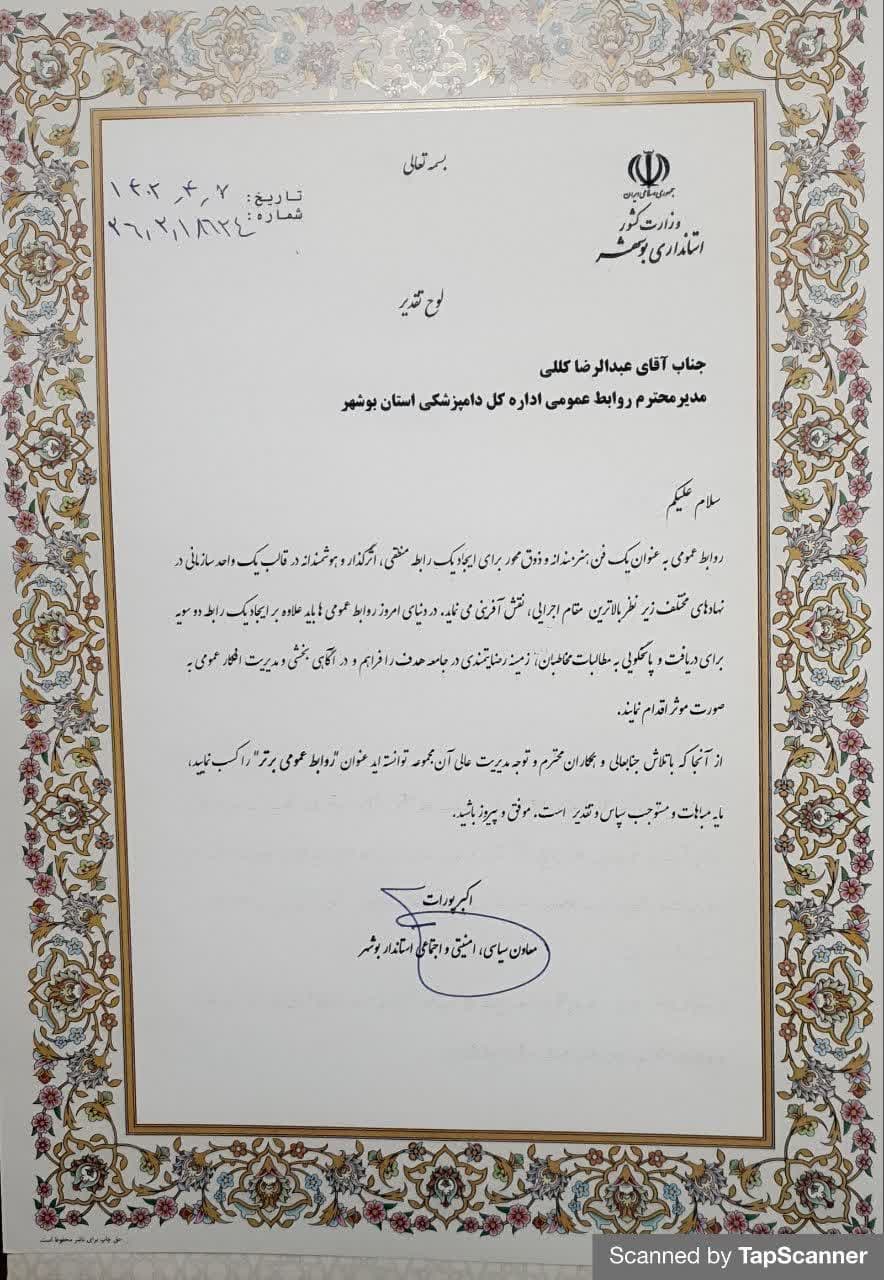 بسمه تعالی
جمهوری اسلامی ایران
وزارت کشور
استانداری بوشهر
تاریخ: ۱۴۰۲٫۴٫۷
شماره:
لوح تقدیر
جناب آقای عبدالرضا کللی
مدیرمحترم روابط عمومی اداره کل دامپزشکی استان بوشهر
سلام علیکم
روابط عمومی به عنوان یک فن هنرمندانه و ذوق محور برای ایجاد یک رابطه منطقی، اثرگذار و هوشمندانه در قالب یک واحد سازمانی در
نهادهای مختلف زیر نظر بالاترین مقام اجرایی، نقش آفرینی می نماید. در دنیای امروز روابط عمومی ها باید علاوه بر ایجاد یک رابطه دو سویه
برای دریافت و پاسخگویی به مطالبات مخاطبان، زمینه رضایتمندی در جامعه هدف را فراهم و در آگاهی بخشی و مدیریت افکار عمومی به
صورت موثر اقدام نمایند.
از آنجا که با تلاش جنابعالی و همکاران محترم و توجه مدیریت عالی آن مجموعه توانسته اید عنوان "روابط عمومی برتر" را کسب نمایید،
مایه مباهات و مستوجب سپاس و تقدیر است. موفق و پیروز باشید.
اکبر پورات
معاون سیاسی، امنیتی و اجتماعی استاندار بوشهر
حق چاپ برای ناشر محفوظ است.
Scanned by TapScanner